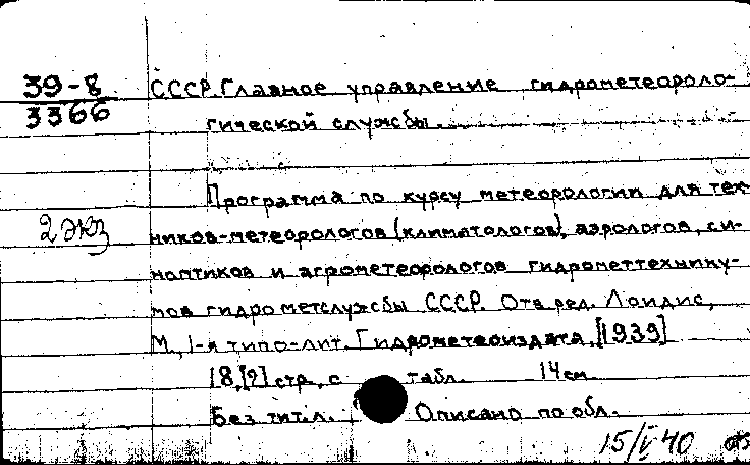 39-8
3366
СССР. Главное управление гидрометеороло-
гической службы.
Программа по курсу метеорологии для тех-
2 экз
ников-метеорологов (климатологов), аэрологов, си-
ноптиков и агрометеорологов гидрометтехнику-
мов гидрометслужбы СССР. Отв. ред. Лоидис,
М., 1-я типо-лит. Гидрометеоиздата, [1939]
18, [2] стр., с табл. 14 см.
Без тит. л. Описано по обл.
15/V 40